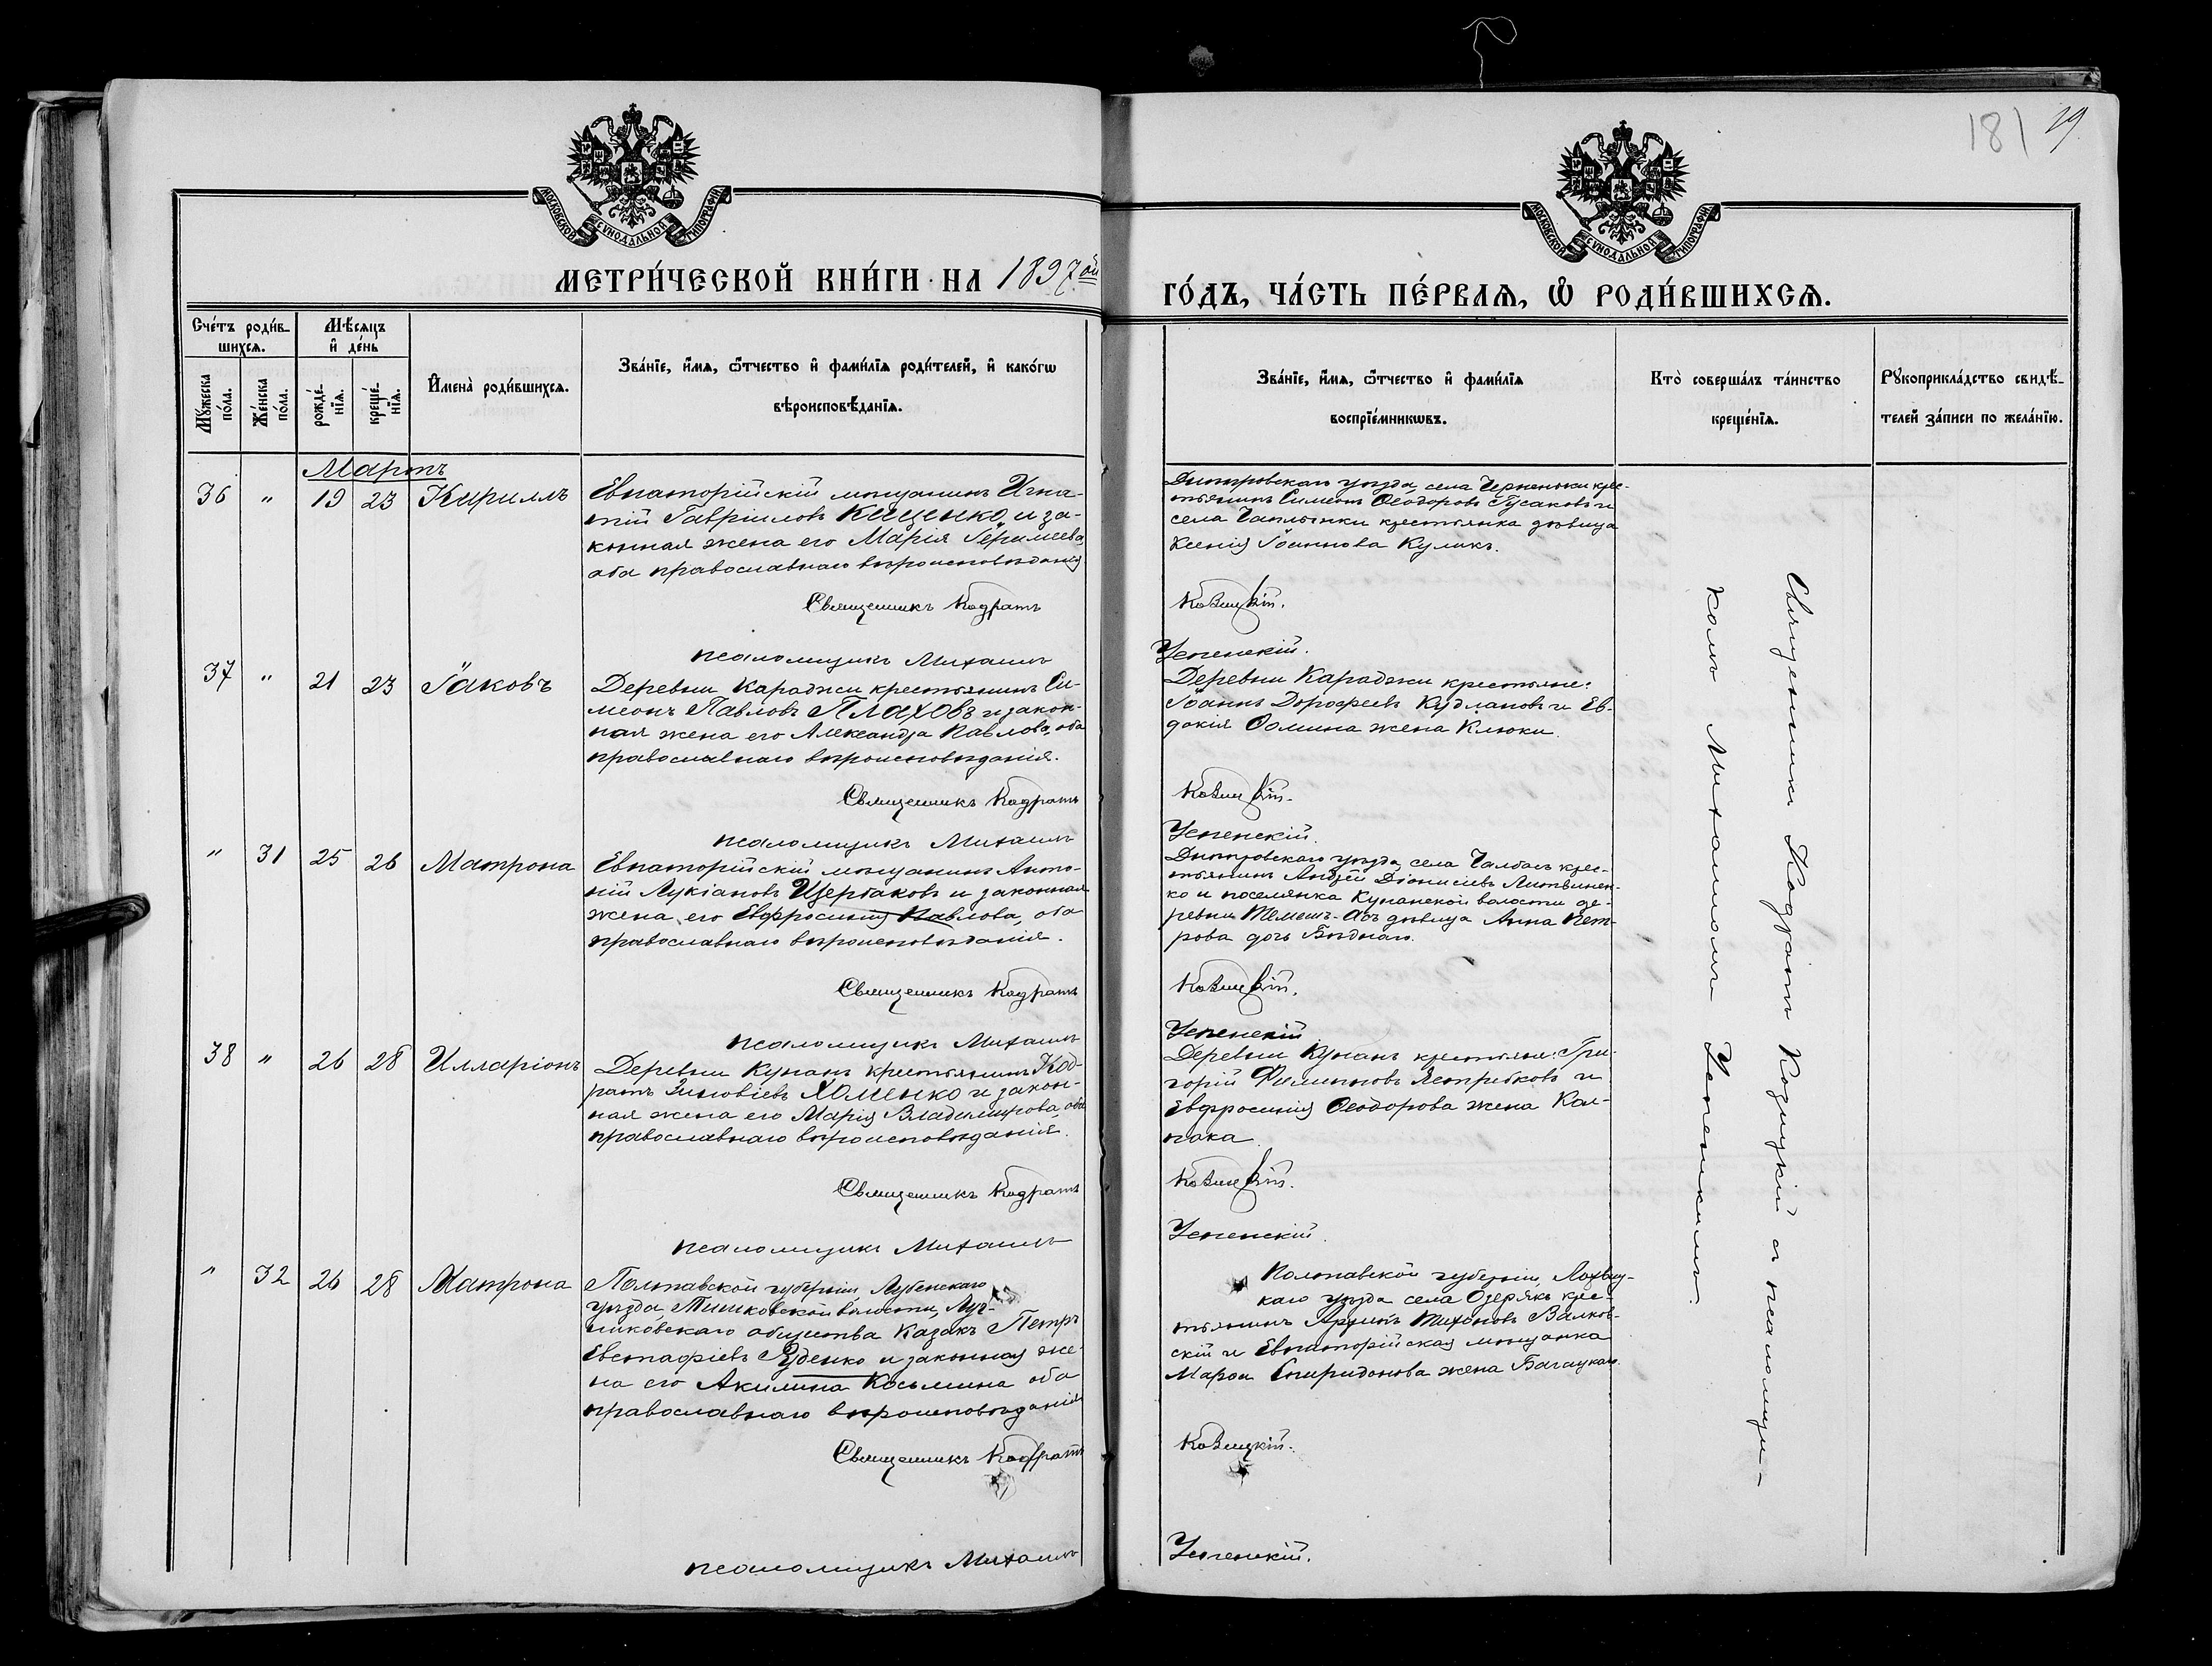 181 19
МОСКОВСКОЙ СУНОДАЛЬНОЙ ТИПОГРАФІИ
МОСКОВСКОЙ СУНОДАЛЬНОЙ ТИПОГРАФІИ
МЕТРИ́ЧЕСКОЙ КНИ́ГИ НА 1897ой
ГО́ДЪ, ЧА́СТЬ ПЕ́РВАѦ, Ѽ РОДИ́ВШИХСѦ.
Сче́тъ роди́в-
шихсѧ.
Мꙋ́жеска по́ла.
Же́нска по́ла.
Мѣ́сѧцъ
и҆ де́нь
рожде́-
нїѧ.
креще́-
нїѧ.
И҆мена̀ роди́вшихсѧ.
Зва́нїе, и҆́мѧ, ѻ҆́тчество и҆ фами́лїѧ роди́телей, и҆ како́гѡ
вѣроисповѣ́данїѧ.
Зва́нїе, и҆́мѧ, ѻ҆́тчество и҆ фами́лїѧ
воспрїе́мникѡвъ.
Кто̀ соверша́лъ та́инство
креще́нїѧ.
Рꙋкоприкла́дство свидѣ́-
телей за́писи по жела́нїю.
Мартъ
36 " 19 23 Кириллъ
Евпаторійскій мѣщанинъ Игна-
тій Гавріиловъ Кищенко и за-
конная жена его Марія Іереміева,
оба православнаго вѣроисповѣданія
Священникъ Кодратъ
псаломщикъ Михаилъ
Днѣпровскаго уѣзда, села Черненьки крес-
тьянинъ Симеонъ Ѳеодоровъ Гусаковъ и
села Чаплынки крестьянка дѣвица
Ксенія Іоаннова Куликъ.
Козицкій.
Успенскій.
37 " 21 23 Іаковъ
Деревни Караджи крестьянинъ Си-
меонъ Павловъ Плаховъ и закон-
ная жена его Александра Павлова, оба
православнаго вѣроисповѣданія.
Священникъ Кодратъ
псаломщикъ Михаилъ
Деревни Караджи крестьяне:
Іоаннъ Дороѳеевъ Кудлановъ и Ев-
докія Ѳомина жена Клюки.
Козицкій.
Успенскій.
" 31 25 26 Матрона
Евпаторійскій мѣщанинъ Анто-
ній Лукіановъ Щербаковъ и законная
жена его Евфросинія Павлова, оба
православнаго вѣроисповѣданія.
Священникъ Кодратъ
псаломщикъ Михаилъ
Днѣпровскаго уѣзда, села Чалбасъ крес-
тьянинъ Андрей Діонисіевъ Литвинен-
ко и поселянка Кунанской волости де-
ревни Темешъ-Абъ дѣвица Анна Пет-
рова дочь Бѣднаго.
Козицкій.
Успенскій
38 " 26 28 Илларіонъ
Деревни Кунанъ крестьянинъ Код-
ратъ Зиновіевъ Хоменко и закон-
ная жена его Марія Владимірова, оба
православнаго вѣроисповѣданія.
Священникъ Кодратъ
псаломщикъ Михаилъ
Деревни Кунанъ крестьяне: Гри-
горій Филипповъ Ястребковъ и
Евфросинія Ѳеодорова жена Кол-
пака.
Козицкій.
Успенскій.
" 32 26 28 Матрона
Полтавской губерніи, Лубенскаго
уѣзда, Тишковской волости,
общества казакъ Петръ
Евстафіевъ Руденко и законная же-
на его Акилина Косьмина оба
православнаго вѣроисповѣданія
Священникъ Кодратъ
псаломщикъ Михаилъ
Полтавской губерніи, Лохвиц-
каго уѣзда села Озерякъ крес-
тьянинъ Тихоновъ Валков-
скій и Евпаторійская мѣщанка
Марѳа Спиридонова жена Багацкаго.
Козицкій.
Успенскій.
Священникъ Кодратъ Козицкій съ псаломщи-
комъ Михаиломъ Успенскимъ.